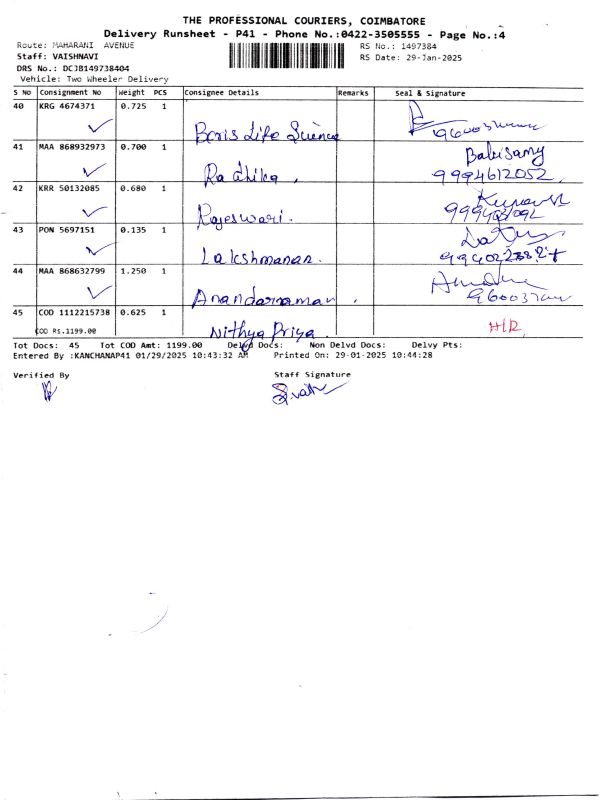 THE PROFESSIONAL COURIERS, COIMBATORE
Delivery Runsheet - P41 - Phone No.:0422-3505555 - Page No.:4
Route: MAHARANI AVENUE RS No.: 1497384
Staff: VAISHNAVI RS Date: 29-Jan-2025
DRS No.: DCJB149738404
Vehicle: Two Wheeler Delivery
S No Consignment No Weight PCS Consignee Details Remarks Seal & Signature
40 KRG 4674371 0.725 1
Boris Life Science
41 MAA 868932973 0.700 1 Babisamy
Radhika, 9994612052
42 KRR 50132085 0.680 1
Rajeswari.
43 PON 5697151 0.135 1
Lakshmanan.
44 MAA 868632799 1.250 1
Anandaraman.
45 COD 1112215738 0.625 1
COD Rs.1199.00 Nithya Priya.
Tot Docs: 45 Tot COD Amt: 1199.00 Delvd Docs: Non Delvd Docs: Delvy Pts:
Entered By :KANCHANAP41 01/29/2025 10:43:32 AM Printed On: 29-01-2025 10:44:28
Verified By Staff Signature